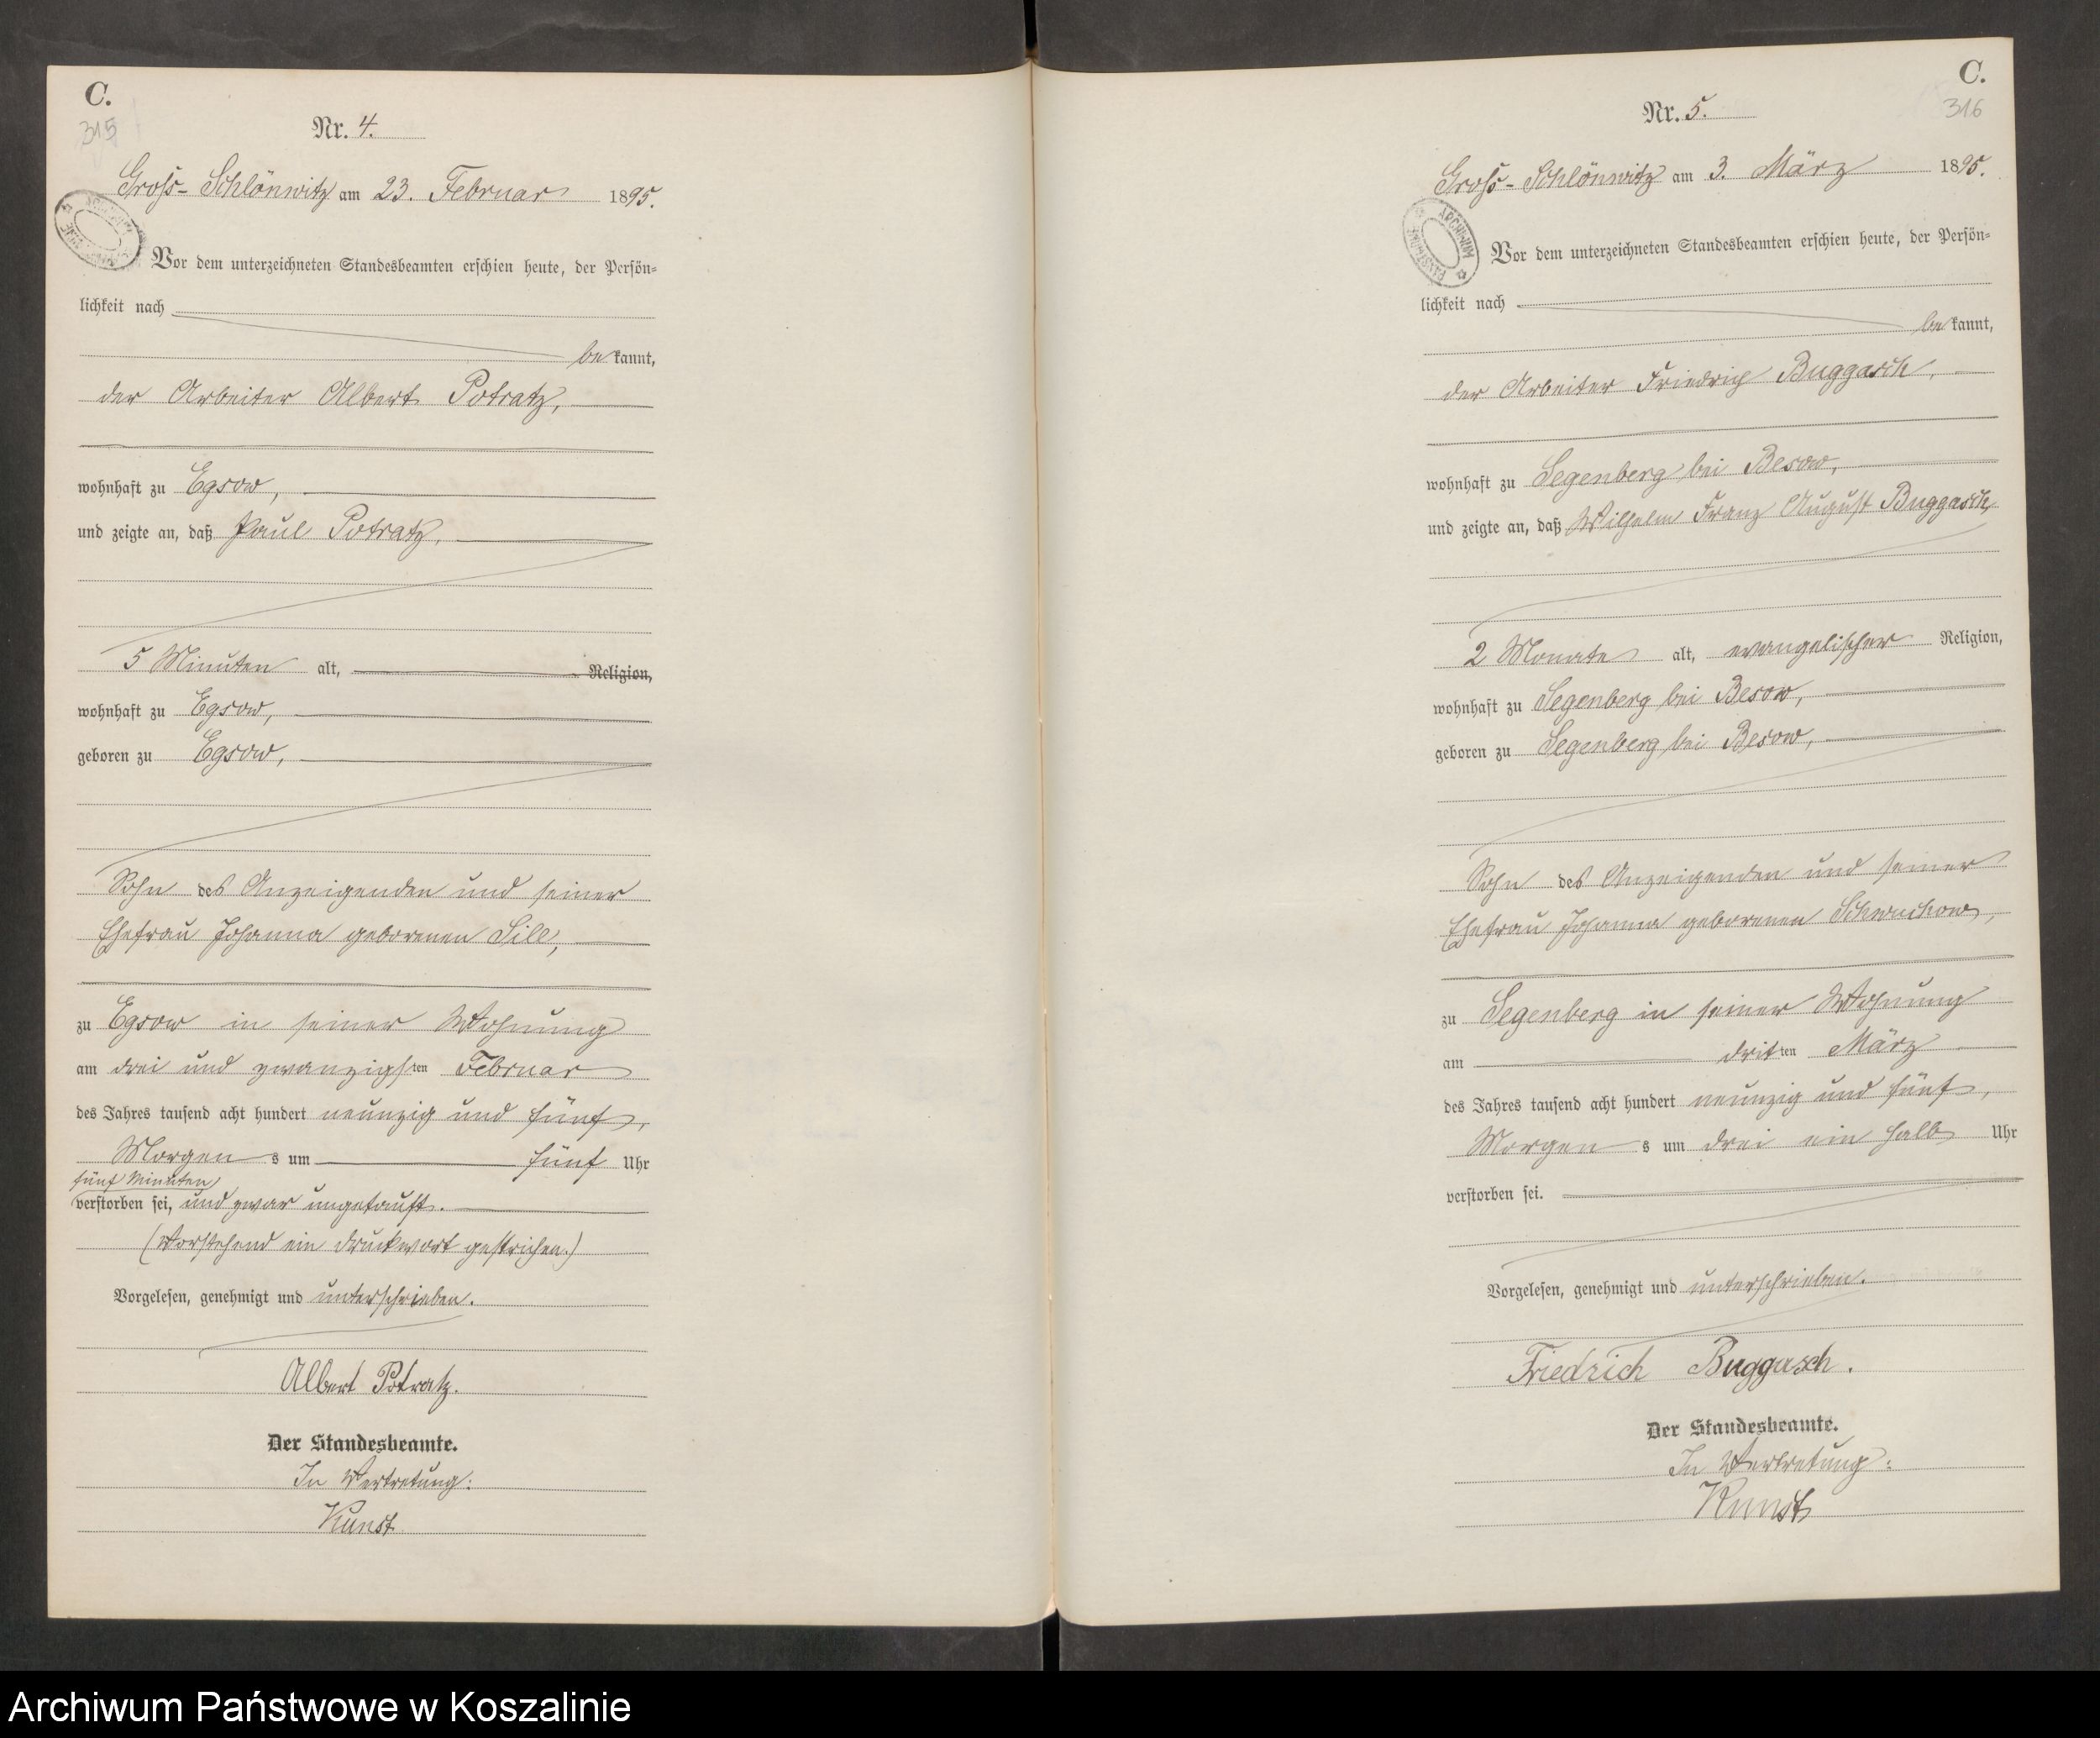 C.
315
Nr. 4.
Gross-Schlönwitz am 23. Februar 1895.
Vor dem unterzeichneten Standesbeamten erschien heute, der Persön=
lichkeit nach
be kannt,
der Arbeiter Albert Potratz,
wohnhaft zu Egsow,
und zeigte an, daß Paul Potratz,
5 Minuten alt, Religion,
wohnhaft zu Egsow,
geboren zu Egsow,
Sohn des Anzeigenden und seiner
Ehefrau Johanna geborenen Sill,
zu Egsow in seiner Wohnung
am drei und zwanzigsten Februar
des Jahres tausend acht hundert neunzig und fünf,
Morgen s um fünf Uhr
fünf Minuten
verstorben sei, und zwar ungetauft.
(Vorstehend ein Druckwort gestrichen.)
Vorgelesen, genehmigt und unterschrieben.
Albert Potratz.
Der Standesbeamte.
In Vertretung:
Kunst
C.
316
Nr. 5.
Gross-Schlönwitz am 3. März 1895.
ARCHIWUM PAŃSTWOWE
Vor dem unterzeichneten Standesbeamten erschien heute, der Persön=
lichkeit nach
be kannt,
der Arbeiter Friedrich Buggasch,
wohnhaft zu Segenberg bei Besow,
und zeigte an, daß Wilhelm Franz August Buggasch,
2 Monate alt, evangelischer Religion,
wohnhaft zu Segenberg bei Besow,
geboren zu Segenberg bei Besow,
Sohn des Anzeigenden und seiner
Ehefrau Johanna geborenen Schwuchow,
zu Segenberg in seiner Wohnung
am dritten März
des Jahres tausend acht hundert neunzig und fünf,
Morgen s um drei ein halb Uhr
verstorben sei.
Vorgelesen, genehmigt und unterschrieben.
Friedrich Buggasch.
Der Standesbeamte.
In Vertretung:
Kunst
Archiwum Państwowe w Koszalinie